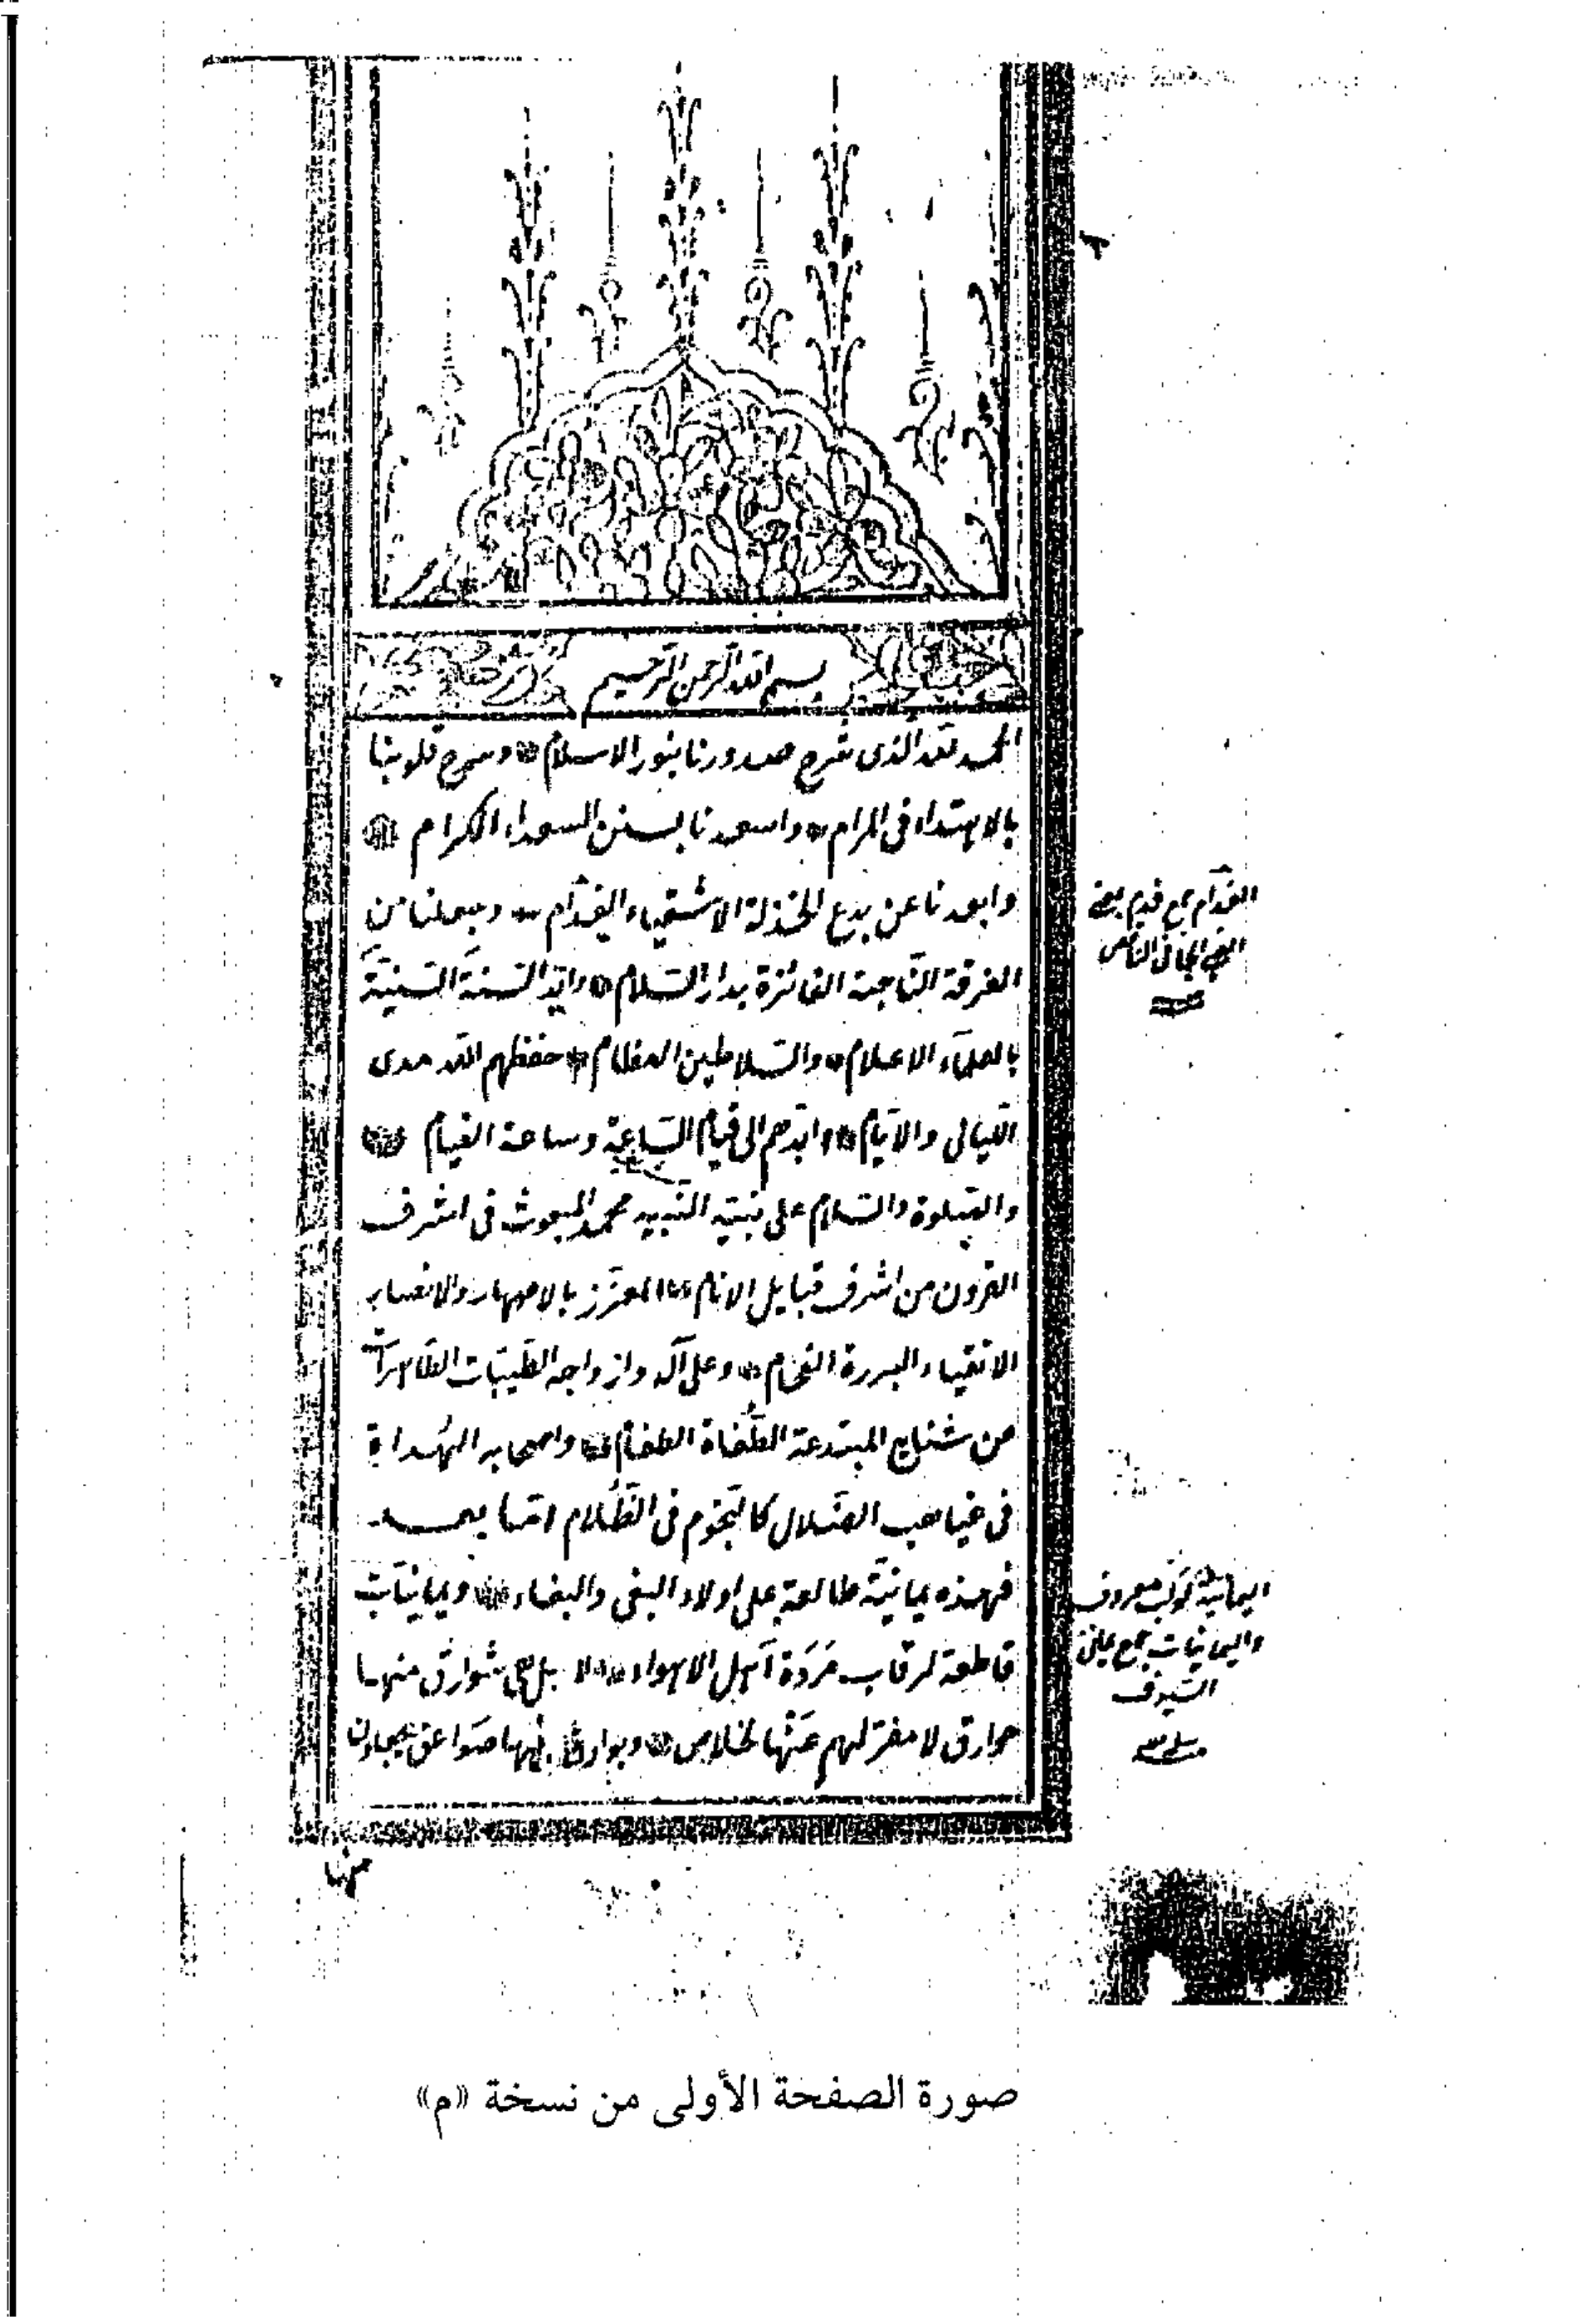 بسم الله الرحمن الرحيم
الحمد لله الذى شرح صدورنا بنور الاسلام وسرح قلوبنا
بالاهتداء فى المرام واسعدنا بسنن السعداء الكرام
وابعدنا عن بدع الخذلة الاشقياء الفدّام وجعلنا من
الفرقة النّاجية الفائزة بدار السّلام وايّد السّنة السّنيّة
بالعلمآء الاعلام والسّلاطين العظام حفظهم الله مدى
اللّيالى والايّام وابّدهم الى قيام السّاعة وساعة القيام
والصّلوة والسّلام على نبيّه النّبيه محمد المبعوث فى اشرف
القرون من اشرف قبايل الانام المعزّز بالاصهار والانصار
الاتقياء البررة الفخام وعلى آله وازواجه الطّيبّات الطّاهرات
من شنايع المبتدعة الطّغاة الطغام واصحابه الهُداة
فى غياهب الضّلال كالنّجوم فى الظّلام امّا بعد
فهذه يمانيّة طالعة على اولاد البغى والبغاء ويمانيّات
قاطعة لرقاب مَرَدَة اهل الاهواء لا بل هى شوارق منها
حوارق لا مفرّ لهم عَنْها لخلاص وبوارق فيها صَوَاعق يجعلون
منها
الفدّام جمع فديم
اليمانية كوكب معروف
واليمانيات جمع يمانى
السّيوف
صورة الصفحة الأولى من نسخة «م»